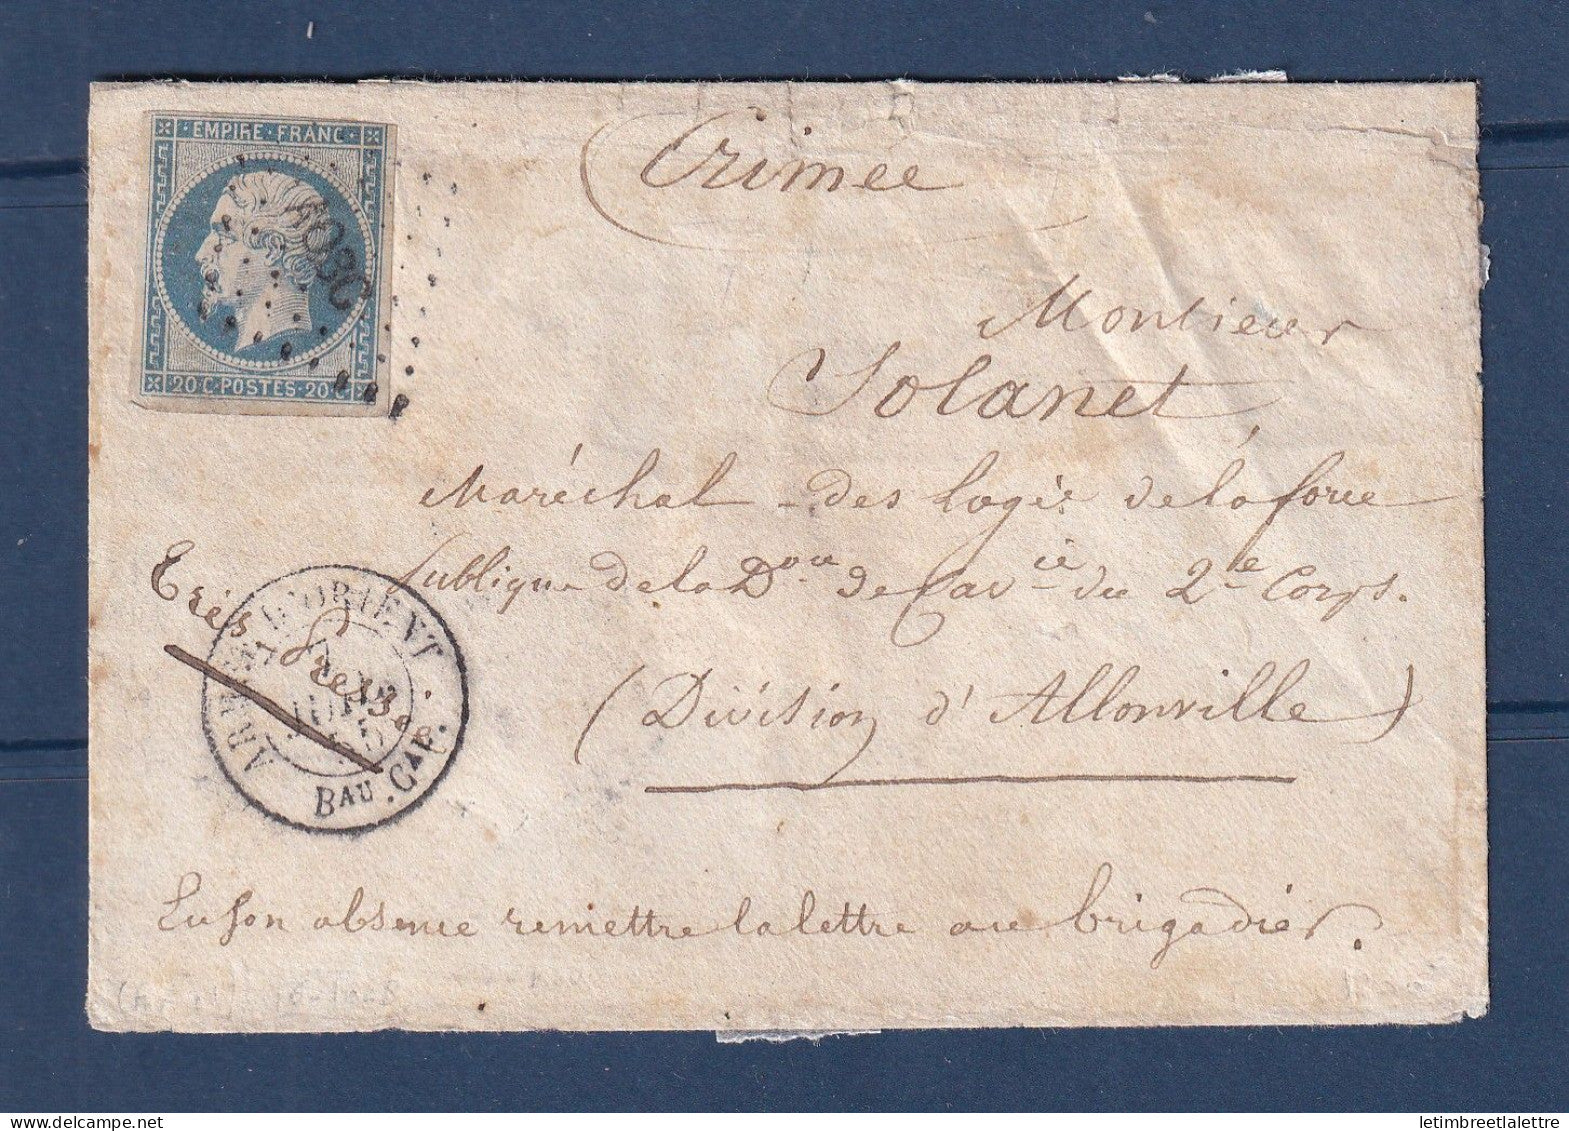 EMPIRE · FRANC ·
20 C · POSTES · 20 C
Crimée
Monsieur
Solanet
Maréchal - des Logis de la force
Publique de la Don de Cavie du 2e Corps.
Très
(Division d'Allonville)
ARMÉE D'ORIENT
JUIN
55
Bau. Gal.
En son absence remettre la lettre au brigadier.
letimbreetlalettre